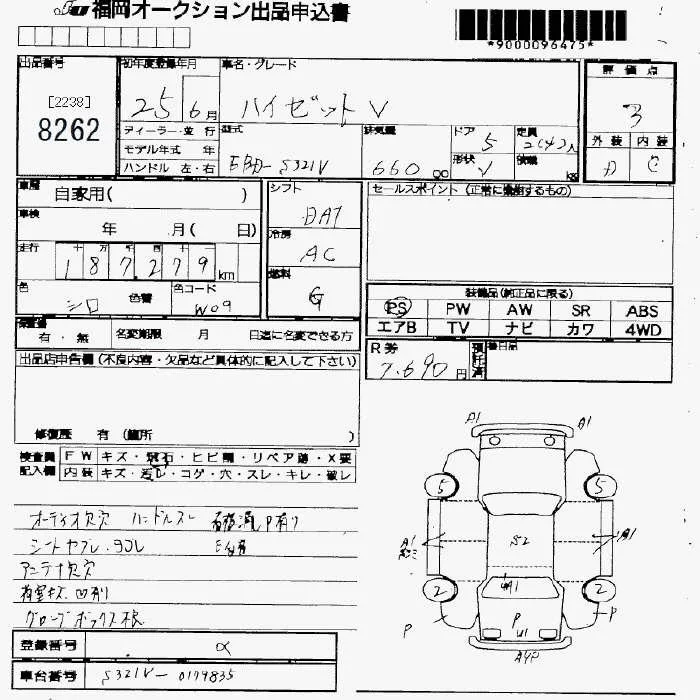 福岡オークション出品申込書
*9000096475*
出品番号
[2238]
8262
初年度登録年月
25年6月
車名・グレード
ハイゼット V
評価点
3
外装 内装
D C
ディーラー・並行
モデル年式 年
ハンドル 左・右
型式
EBD- S321V
排気量
660 cc
ドア
5
形状
V
定員
2(4)人
積載
kg
車歴
自家用( )
車検
年 月( 日)
走行
十 万 千 百 十
187,279 km
色
シロ
色替
色コード
W09
シフト
DAT
冷房
AC
燃料
G
セールスポイント (正常に機能するもの)
装備品(純正品に限る)
PS PW AW SR ABS
エアB TV ナビ カワ 4WD
保証書
有・無
名変期限 月 日迄に名変できる方
R券
7,690円
預託済
後日品
出品店申告欄 (不良内容・欠品など具体的に記入して下さい)
修復歴 有 (箇所 )
検査員
記入欄
FW キズ・飛石・ヒビ割・リペア跡・X要
内装 キズ・汚レ・コゲ・穴・スレ・キレ・破レ
オーディオ欠穴 ハンドルスレ
シートヤブレ・ヨゴレ
アンテナ欠穴
荷室キズ凹有り
グローブボックス
A1 A1
5 5
A1 S2 A1
2 2
P P P
登録番号
α
車台番号
S321V-0179835